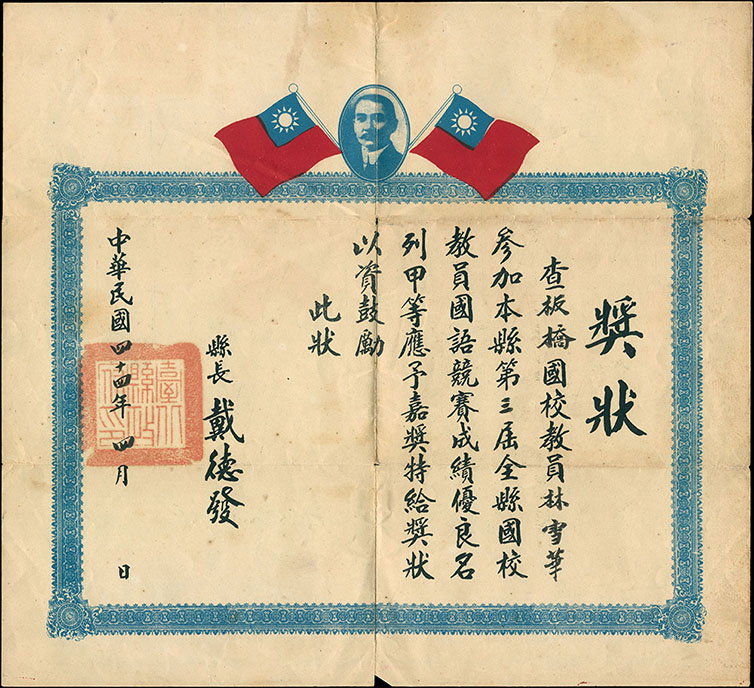 獎狀
查板橋國校教員林雪華
參加本縣第三屆全縣國校
教員國語競賽成績優良名
列甲等應予嘉獎特給獎狀
以資鼓勵
此狀
縣長 戴德發
中華民國四十四年 四月 日
臺北縣政府印